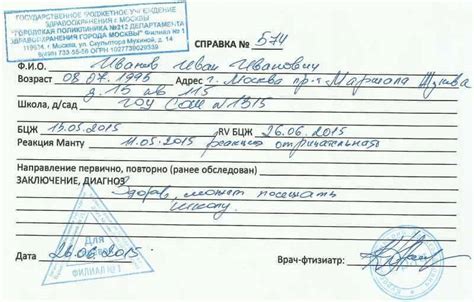 ГОСУДАРСТВЕННОЕ БЮДЖЕТНОЕ УЧРЕЖДЕНИЕ
ЗДРАВООХРАНЕНИЯ г. МОСКВЫ
"ГОРОДСКАЯ ПОЛИКЛИНИКА №212 ДЕПАРТАМЕНТА
ЗДРАВООХРАНЕНИЯ ГОРОДА МОСКВЫ" Филиал № 1
119634, г. Москва, ул. Скульптора Мухиной, д. 14
733-55-56 ОГРН 1027739020539
СПРАВКА № 574
Ф.И.О. Иванов Иван Иванович
Возраст 08.07.1995 Адрес г. Москва пр-т Маршала Жукова
д. 15 кв 115
Школа, д/сад ГОУ СОШ №1315
БЦЖ 15.05.2015 RV БЦЖ 26.06.2015
Реакция Манту 11.05.2015 реакция отрицательная
Направление первично, повторно (ранее обследован)
ЗАКЛЮЧЕНИЕ, ДИАГНОЗ
Здоров, может посещать
школу.
Для
Дата 26.06.2015 Врач-фтизиатр:
ФИЛИАЛ №1